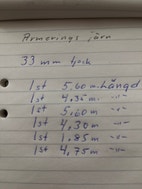 Armerings järn
33 mm tjock
1st 5,60 m. Längd
1st 4,35 m. -"-
1st 5,60 m -"-
1st 4,30 m -"-
1st 1,85 m -"-
1st 4,75 m -"-